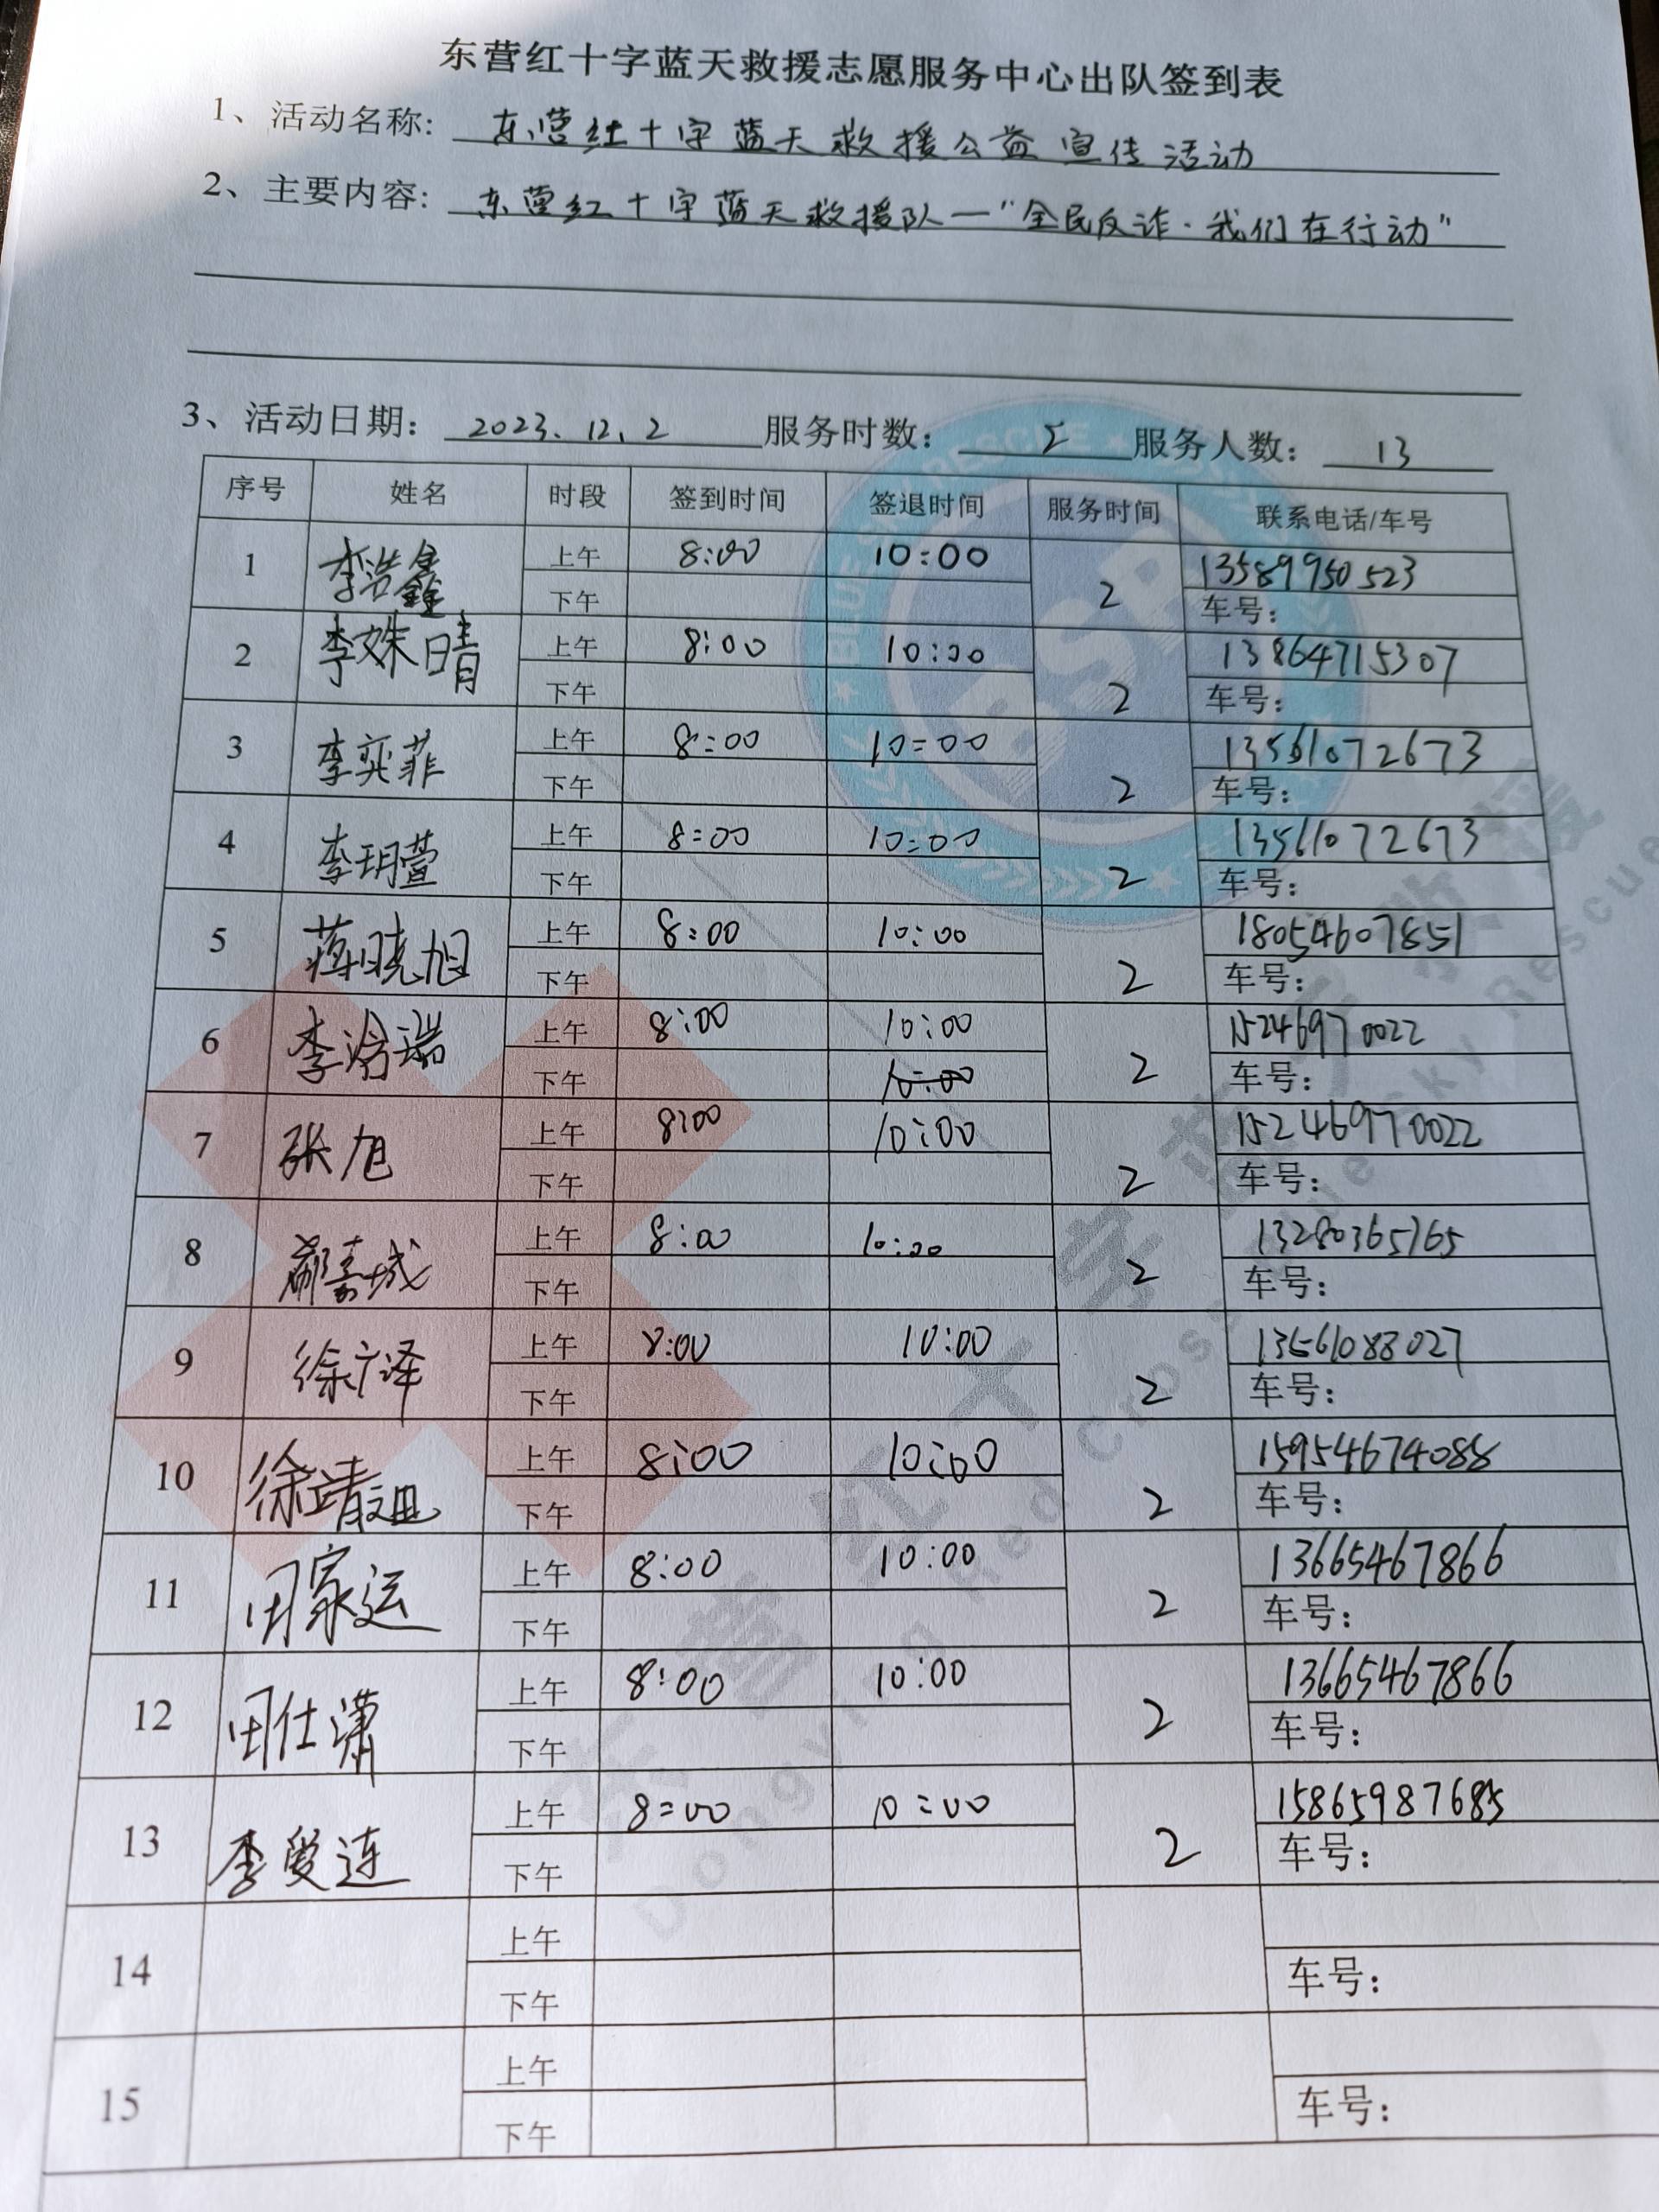 东营红十字蓝天救援志愿服务中心出队签到表
1、活动名称: 东营红十字蓝天救援公益宣传活动
2、主要内容: 东营红十字蓝天救援队—"全民反诈·我们在行动"
3、活动日期: 2023.12.2 服务时数: 服务人数: 13
序号 姓名 时段 签到时间 签退时间 服务时间 联系电话/车号
1 李浩鑫 上午 8:00 10:00 2 13589950523
下午 车号:
2 李姝晴 上午 8:00 10:00 2 13864715307
下午 车号:
3 李奕菲 上午 8:00 10:00 2 13561072673
下午 车号:
4 李玥萱 上午 8:00 10:00 2 13561072673
下午 车号:
5 蒋晓旭 上午 8:00 10:00 2 18054607851
下午 车号:
6 李浛瑞 上午 8:00 10:00 2 15246970022
下午 10:00 车号:
7 张旭 上午 8:00 10:00 2 15246970022
下午 车号:
8 嘉城 上午 8:00 10:00 2 13280365765
下午 车号:
9 徐广泽 上午 8:00 10:00 2 13561088027
下午 车号:
10 徐靖 上午 8:00 10:00 2 15954674088
下午 车号:
11 田家运 上午 8:00 10:00 2 13665467866
下午 车号:
12 田仕潇 上午 8:00 10:00 2 13665467866
下午 车号:
13 李爱连 上午 8:00 10:00 2 15865987685
下午 车号:
14 上午
下午 车号:
15 上午
下午 车号:
BLUE SKY RESCUE
BSR
东营红十字蓝天救援
Dongying Red Cross Blue Sky Rescue